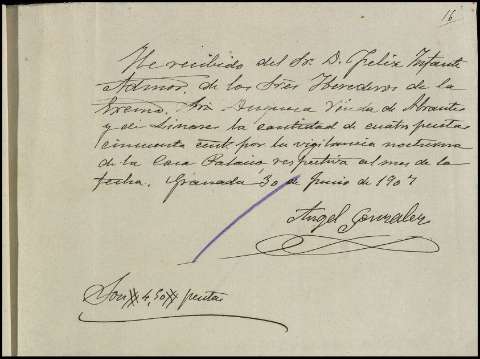 16
He recibido del Sr. D. Felix Infante
Admor. de los Sres Herederos de la
Excma. Sra Duquesa Viuda de Abrantes
y de Linares la cantidad de cuatro pesetas
cincuenta cents por la vigilancia nocturna
de la Casa Palacio, respectiva al mes de la
fecha. Granada 30 de Junio de 1907
Angel Gonzalez
Son # 4,50 # pesetas